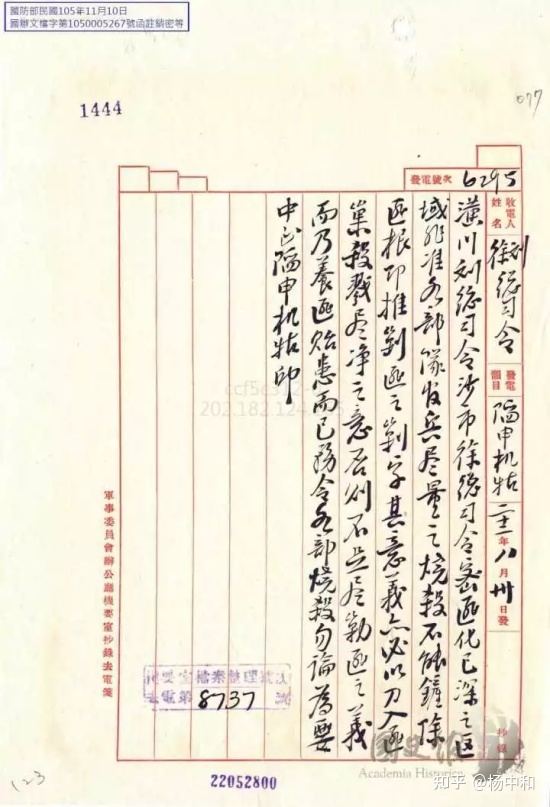 國防部民國105年11月10日
國辦文檔字第1050005267號函註銷密等
1444
077
發電號次 6295
收電人姓名 刘徐總司令 發電韻目 机牯 二十一年八月卅日發 抄錄
潢川刘總司令沙市徐總司令密匪化已深之区
域非准各部隊官兵尽量之燒殺不能鏟除
匪根即推剿匪之剿字其意義亦必以刀入匪
巢殺戮尽净之意否则不足尽勦匪之義
而乃養匪貽患而已務令各部燒殺勿論為要
中正 申机牯印
軍事委員會辦公廳機要室抄錄去電箋
機要室檔案整理
去電第8737號
22052800
123
202.182.124
國史館
Academia Historica
知乎 @杨中和